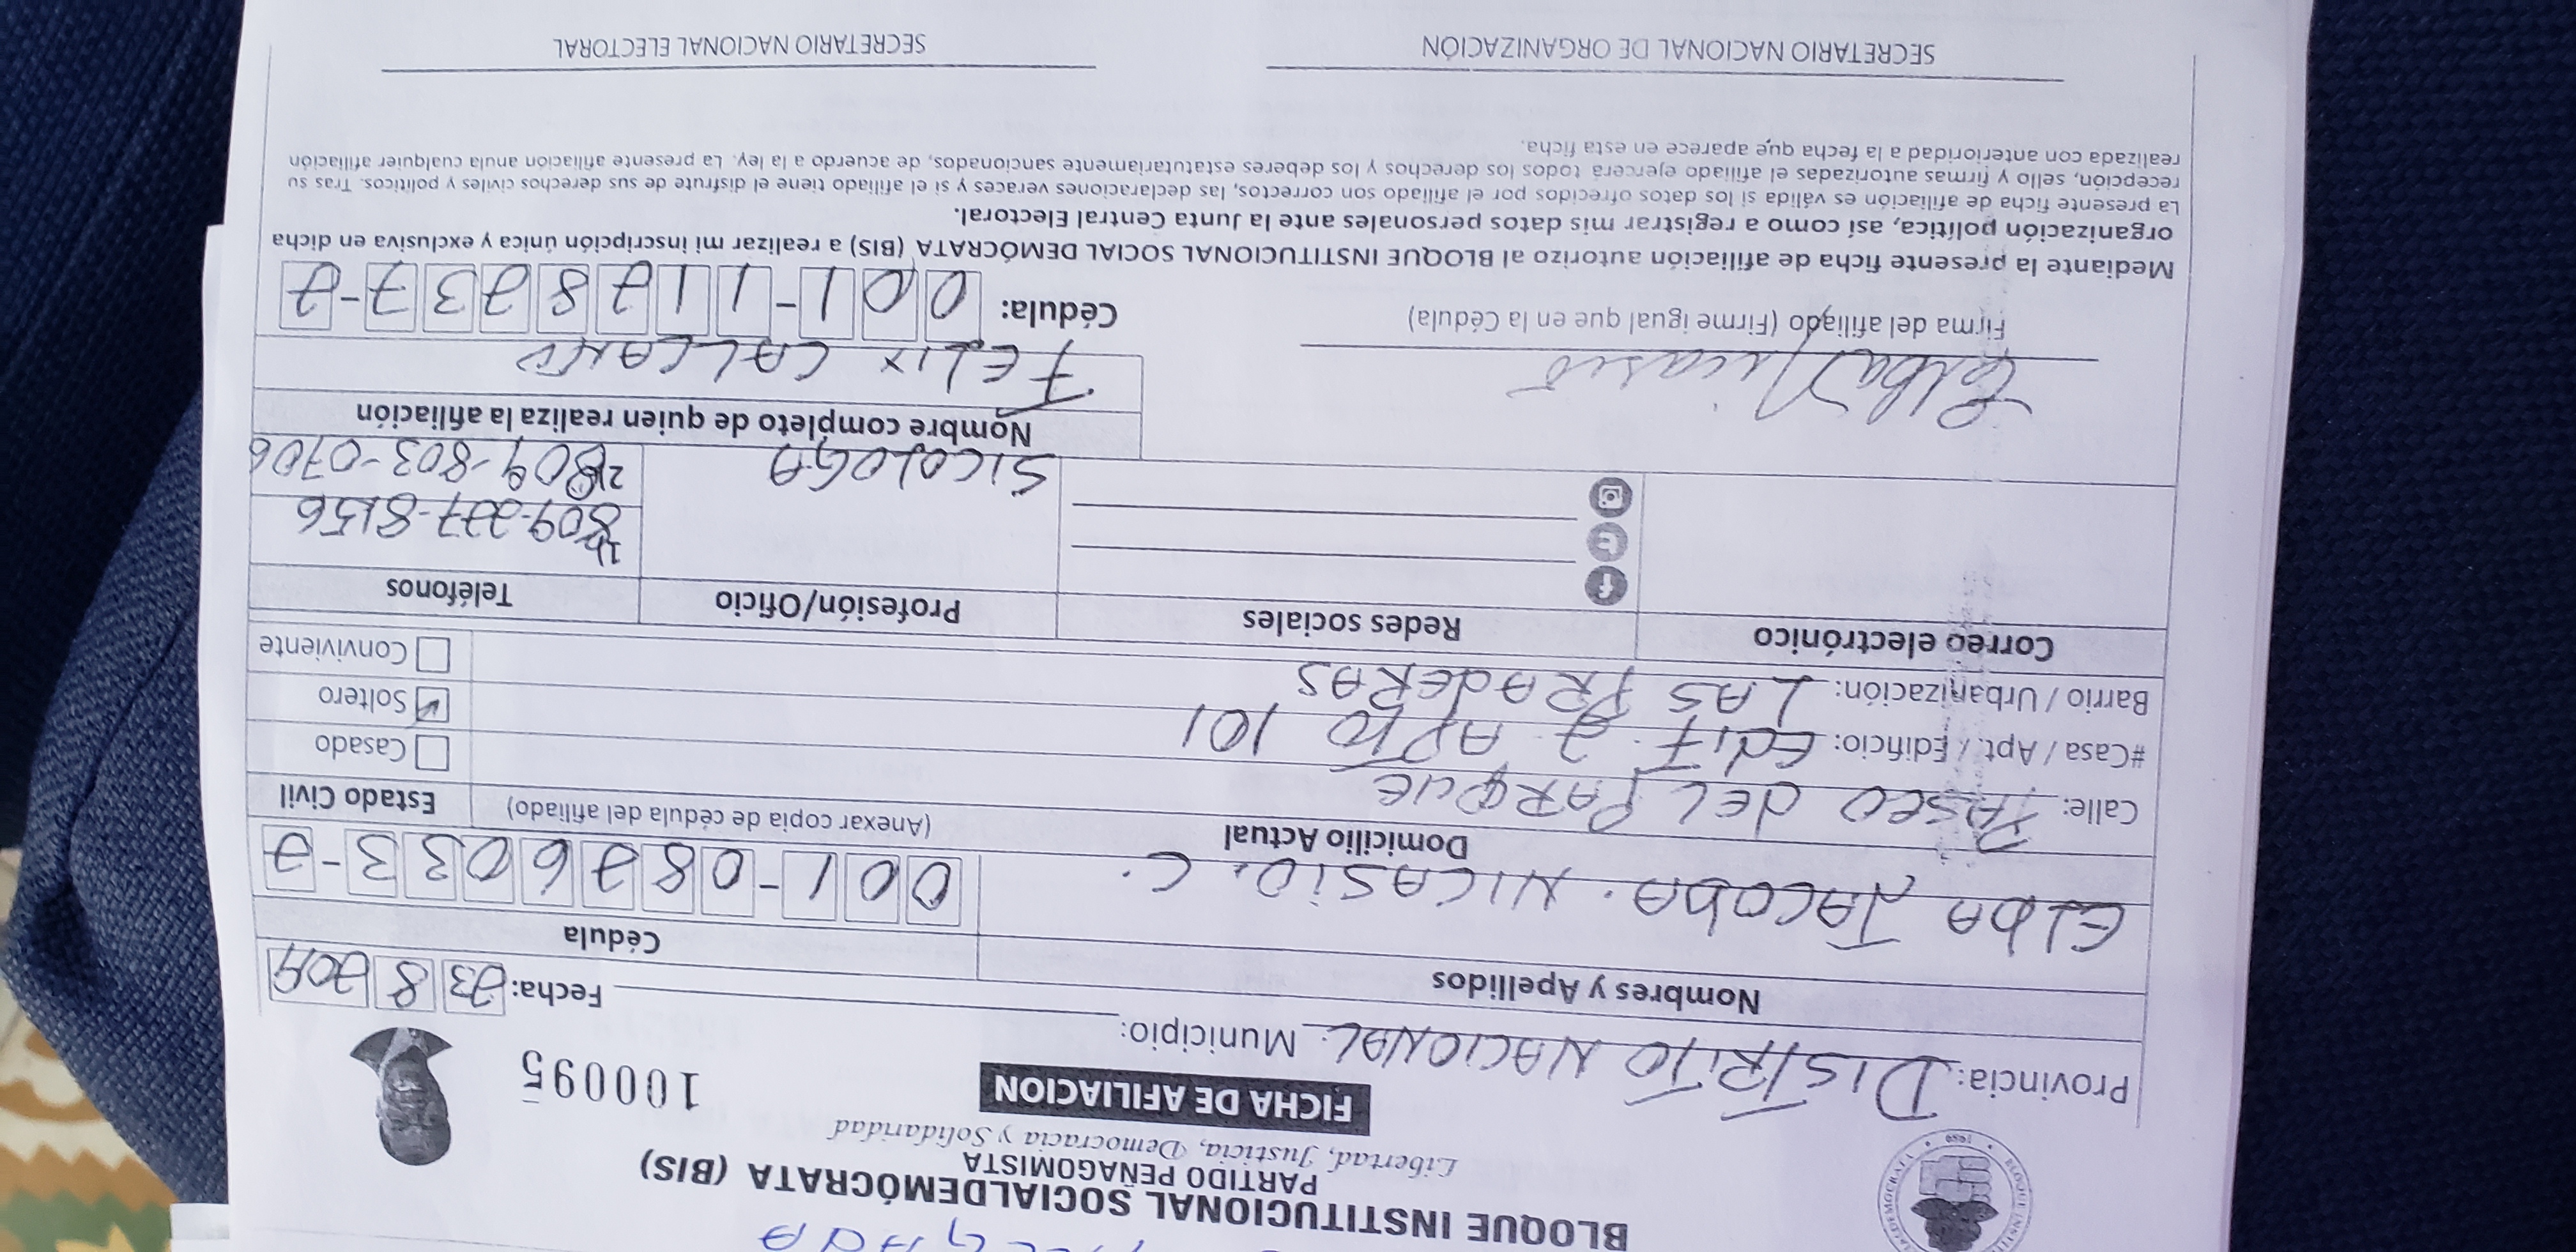 BLOQUE INSTITUCIONAL SOCIALDEMÓCRATA (BIS)
PARTIDO PEÑAGOMISTA
Libertad, Justicia, Democracia y Solidaridad
FICHA DE AFILIACION
100095
Provincia: DISTRITO NACIONAL. Municipio:
Fecha: 23 8 209
Nombres y Apellidos
Cédula
ELBA JACOBA. NICASIO. C.
001-0826033-2
Domicilio Actual
(Anexar copia de cédula del afiliado)
Estado Civil
Calle: PASEO DEL PARQUE
Casado
#Casa / Apt. / Edificio: EDIF. 2 APTO 101
Soltero
Barrio / Urbanización: LAS PRADERAS
Conviviente
Correo electrónico
Redes sociales
Profesión/Oficio
Teléfonos
SICOLOGA
809-227-8156
809-803-0706
Nombre completo de quien realiza la afiliación
FELIX CALCAÑO
Elba Nicasio
Firma del afiliado (Firme igual que en la Cédula)
Cédula: 001-1128237-2
Mediante la presente ficha de afiliación autorizo al BLOQUE INSTITUCIONAL SOCIAL DEMÓCRATA (BIS) a realizar mi inscripción única y exclusiva en dicha
organización política, así como a registrar mis datos personales ante la Junta Central Electoral.
La presente ficha de afiliación es válida si los datos ofrecidos por el afiliado son correctos, las declaraciones veraces y si el afiliado tiene el disfrute de sus derechos civiles y políticos. Tras su
recepción, sello y firmas autorizadas el afiliado ejercerá todos los derechos y los deberes estatutariamente sancionados, de acuerdo a la ley. La presente afiliación anula cualquier afiliación
realizada con anterioridad a la fecha que aparece en esta ficha.
SECRETARIO NACIONAL DE ORGANIZACIÓN
SECRETARIO NACIONAL ELECTORAL